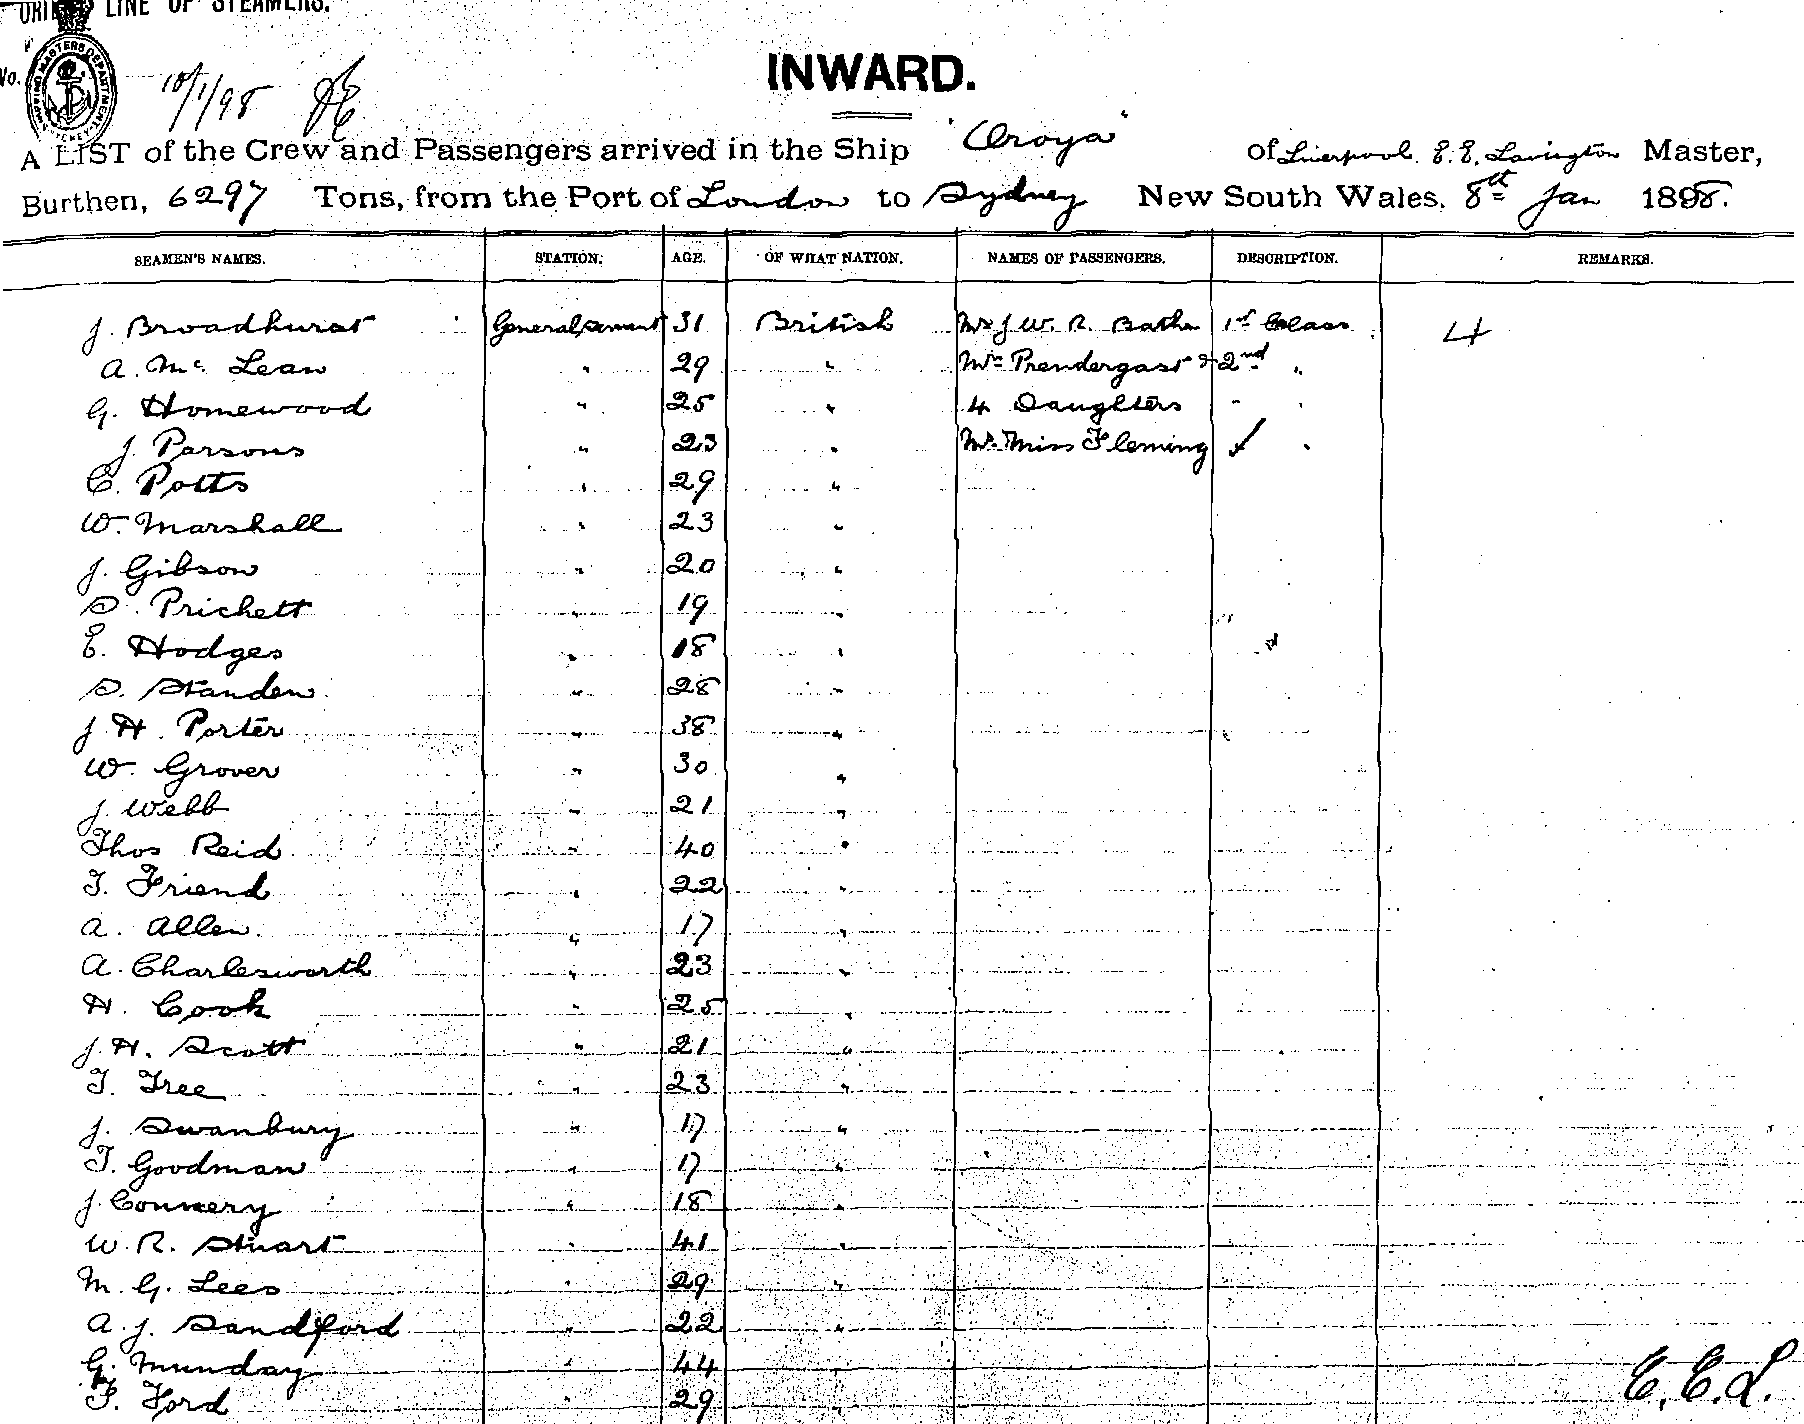 ORIENT LINE OF STEAMERS.
No.
SHIPPING MASTERS DEPARTMENT SYDNEY
10/1/98
INWARD.
A LIST of the Crew and Passengers arrived in the Ship "Oroya" of Liverpool. E.E. Lavington Master,
Burthen, 6297 Tons, from the Port of London to Sydney New South Wales. 8th Jan 1898.
SEAMEN'S NAMES. STATION. AGE. OF WHAT NATION. NAMES OF PASSENGERS. DESCRIPTION. REMARKS.
J. Broadhurst General servant 31 British Mr J W. R. 1st Class 4
A. Mc Lean " 29 " Mrs Prendergast & 2nd "
G. Homewood " 25 " 4 Daughters " "
J. Parsons " 23 " Miss Fleming "
C. Potts " 29 "
W. Marshall " 23 "
J. Gibson " 20 "
S. Prichett " 19 "
E. Hodges " 18 "
S. Standen " 28 "
J. H. Porter " 38 "
W. Grover " 30 "
J. Webb " 21 "
Thos Reid " 40 "
T. Friend " 22 "
A. Allen " 17 "
A. Charlesworth " 23 "
H. Cook " 25 "
J. H. Scott " 21 "
T. Tree " 23 "
J. Swanbury " 17 "
T. Goodman " 17 "
J. Connery " 18 "
W. R. Stuart " 41 "
M. G. Lees " 29 "
A. J. Sandford " 22 "
G. Munday " 44
F. Ford " 29 "
E.E.L.